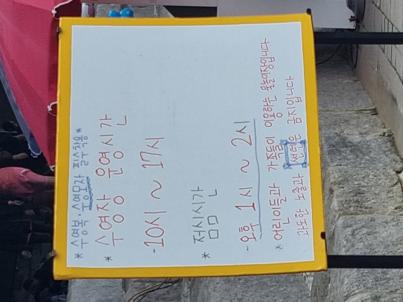 * 수영복, 수영모자 필수착용 *
* 수영장 운영시간
- 10시 ~ 17시
* 점심시간
- 오후 1시 ~ 2시
* 어린이들과 가족들이 이용하는 물놀이장입니다
과도한 노출과 썬텐은 금지입니다